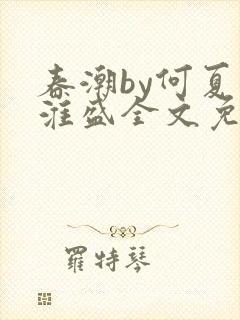 春潮by何夏
淮盛全文免
羅特琴